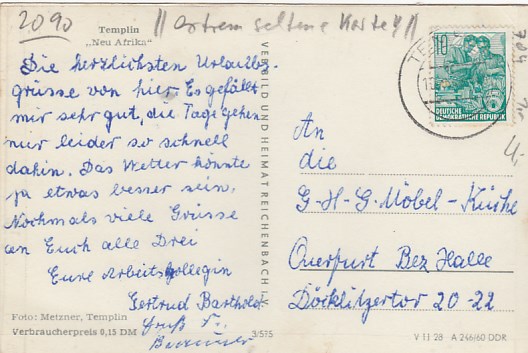 2090
|| extrem seltene Karte !! ||
704
Templin
„Neu Afrika“
Die herzlichsten Urlaubs-
grüsse von hier. Es gefällt
mir sehr gut, die Tage gehen
nur leider so schnell
dahin. Das Wetter könnte
ja etwas besser sein.
Nochmals viele Grüsse
an Euch alle Drei
Eure Arbeitskollegin
Gertrud Barthold
Gruß
Foto: Metzner, Templin
Verbraucherpreis 0,15 DM
3/575
VERBILD UND HEIMAT REICHENBACH I. V.
TE
10
DEUTSCHE
DEMOKRATISCHE REPUBLIK
4,-
An
die
G-H-G Möbel-Küche
Querfurt Bez Halle
Döcklitzertor 20-22
V 11 28 A 246/60 DDR